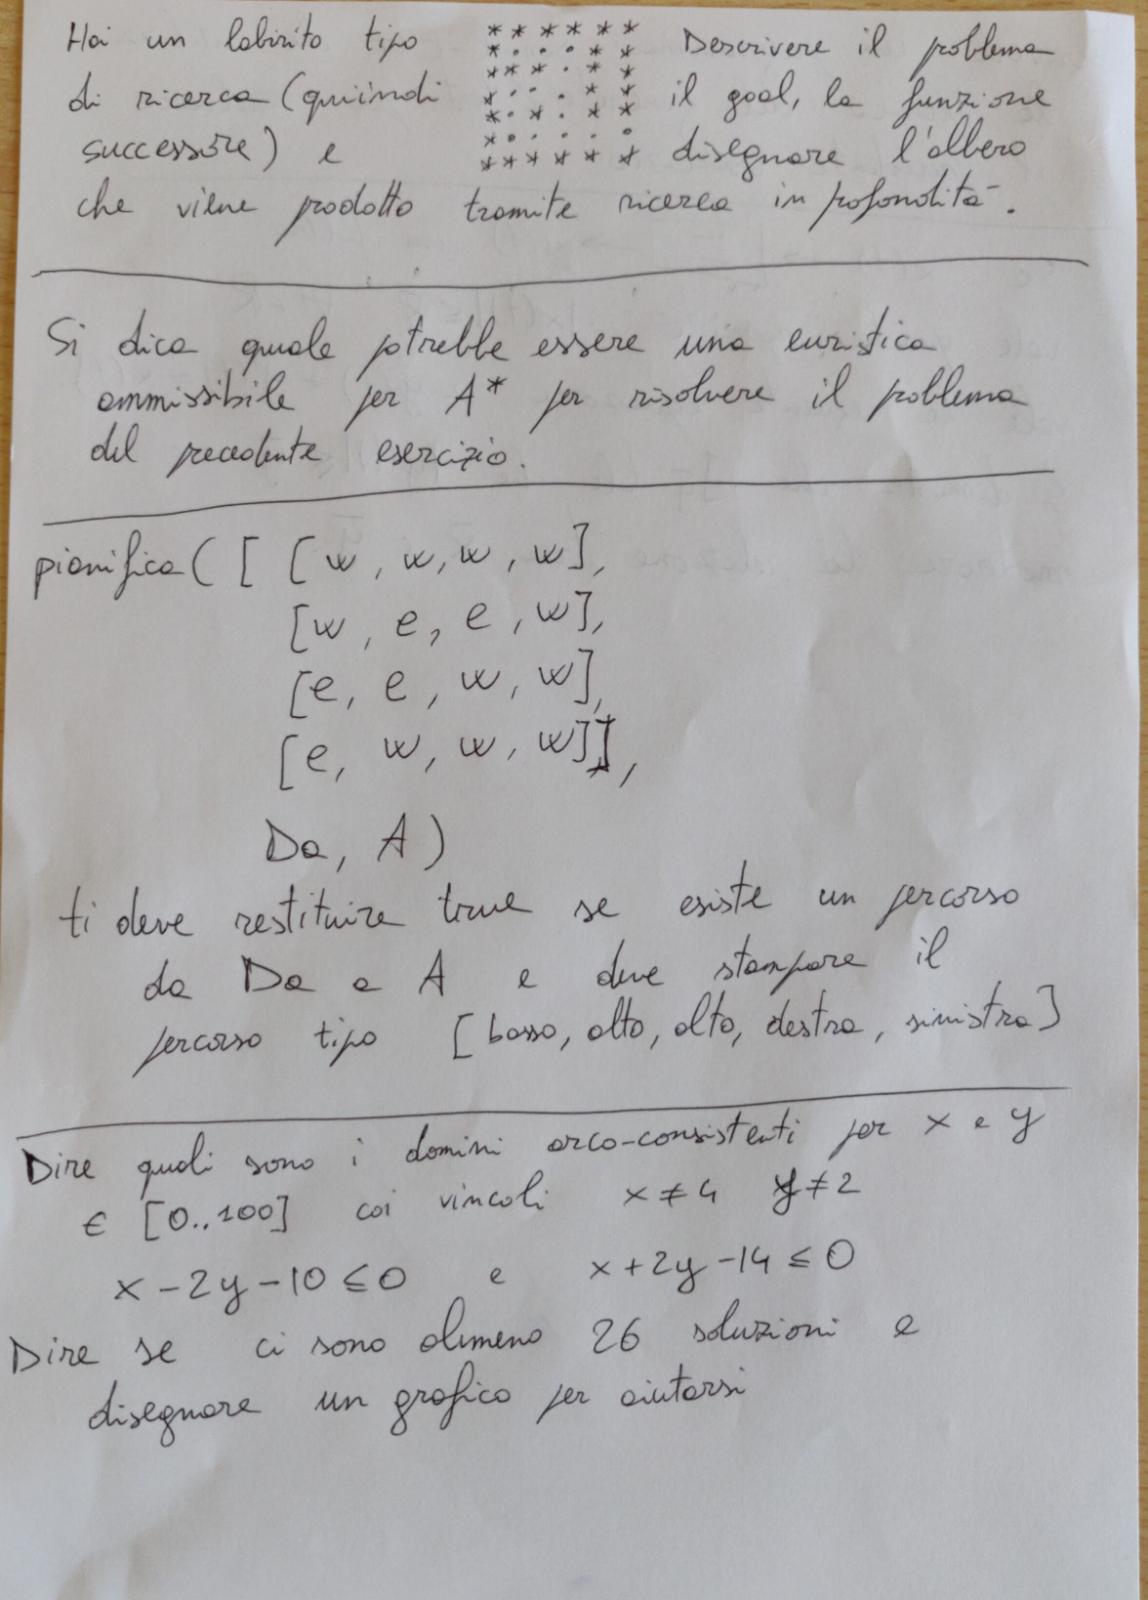 Hai un labirito tipo * * * * * * Descrivere il problema
* . . . * *
di ricerca (quiindi * * * . * * il goal, la funzione
* . . . * *
successore) e * . * . * * disegnare l'albero
* . . . . .
* * * * * *
che viene prodotto tramite ricerca in profondità.
Si dica quale potrebbe essere una euristica
ammissibile per A* per risolvere il problema
del precedente esercizio.
pianifica ( [ [w, w, w, w],
[w, e, e, w],
[e, e, w, w],
[e, w, w, w]],
Da, A)
ti deve restituire true se esiste un percorso
da Da a A e deve stampare il
percorso tipo [basso, alto, alto, destra, sinistra]
Dire quali sono i domini arco-consistenti per x e y
∈ [0..100] coi vincoli x ≠ 4 y ≠ 2
x - 2y - 10 ≤ 0 e x + 2y - 14 ≤ 0
Dire se ci sono almeno 26 soluzioni e
disegnare un grafico per aiutarsi